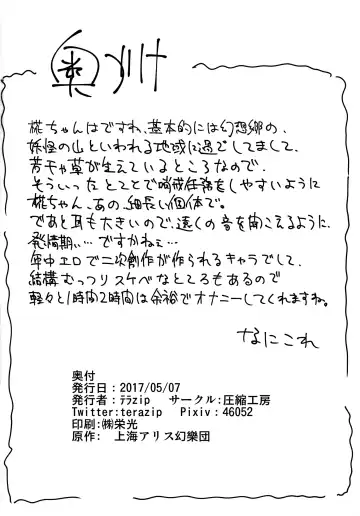 奥付
椛ちゃんはですね、基本的には幻想郷の、
妖怪の山といわれる地域に過ごしてまして、
芳千や草が生えているところなので、
そういったとことで哨戒任務をしやすいように
椛ちゃん、あの、細長い個体で。
であと耳も大きいので、遠くの音を聞こえるように、
発情期、、…ですかねぇ…
年中エロで二次創作が作られるキャラでして、
結構むっつりスケベなところもあるので
軽々と1時間2時間は余裕でオナニーしてくれますね。
なにこれ
奥付
発行日:2017/05/07
発行者:テラzip サークル:圧縮工房
Twitter:terazip Pixiv:46052
印刷:㈱栄光
原作: 上海アリス幻樂団